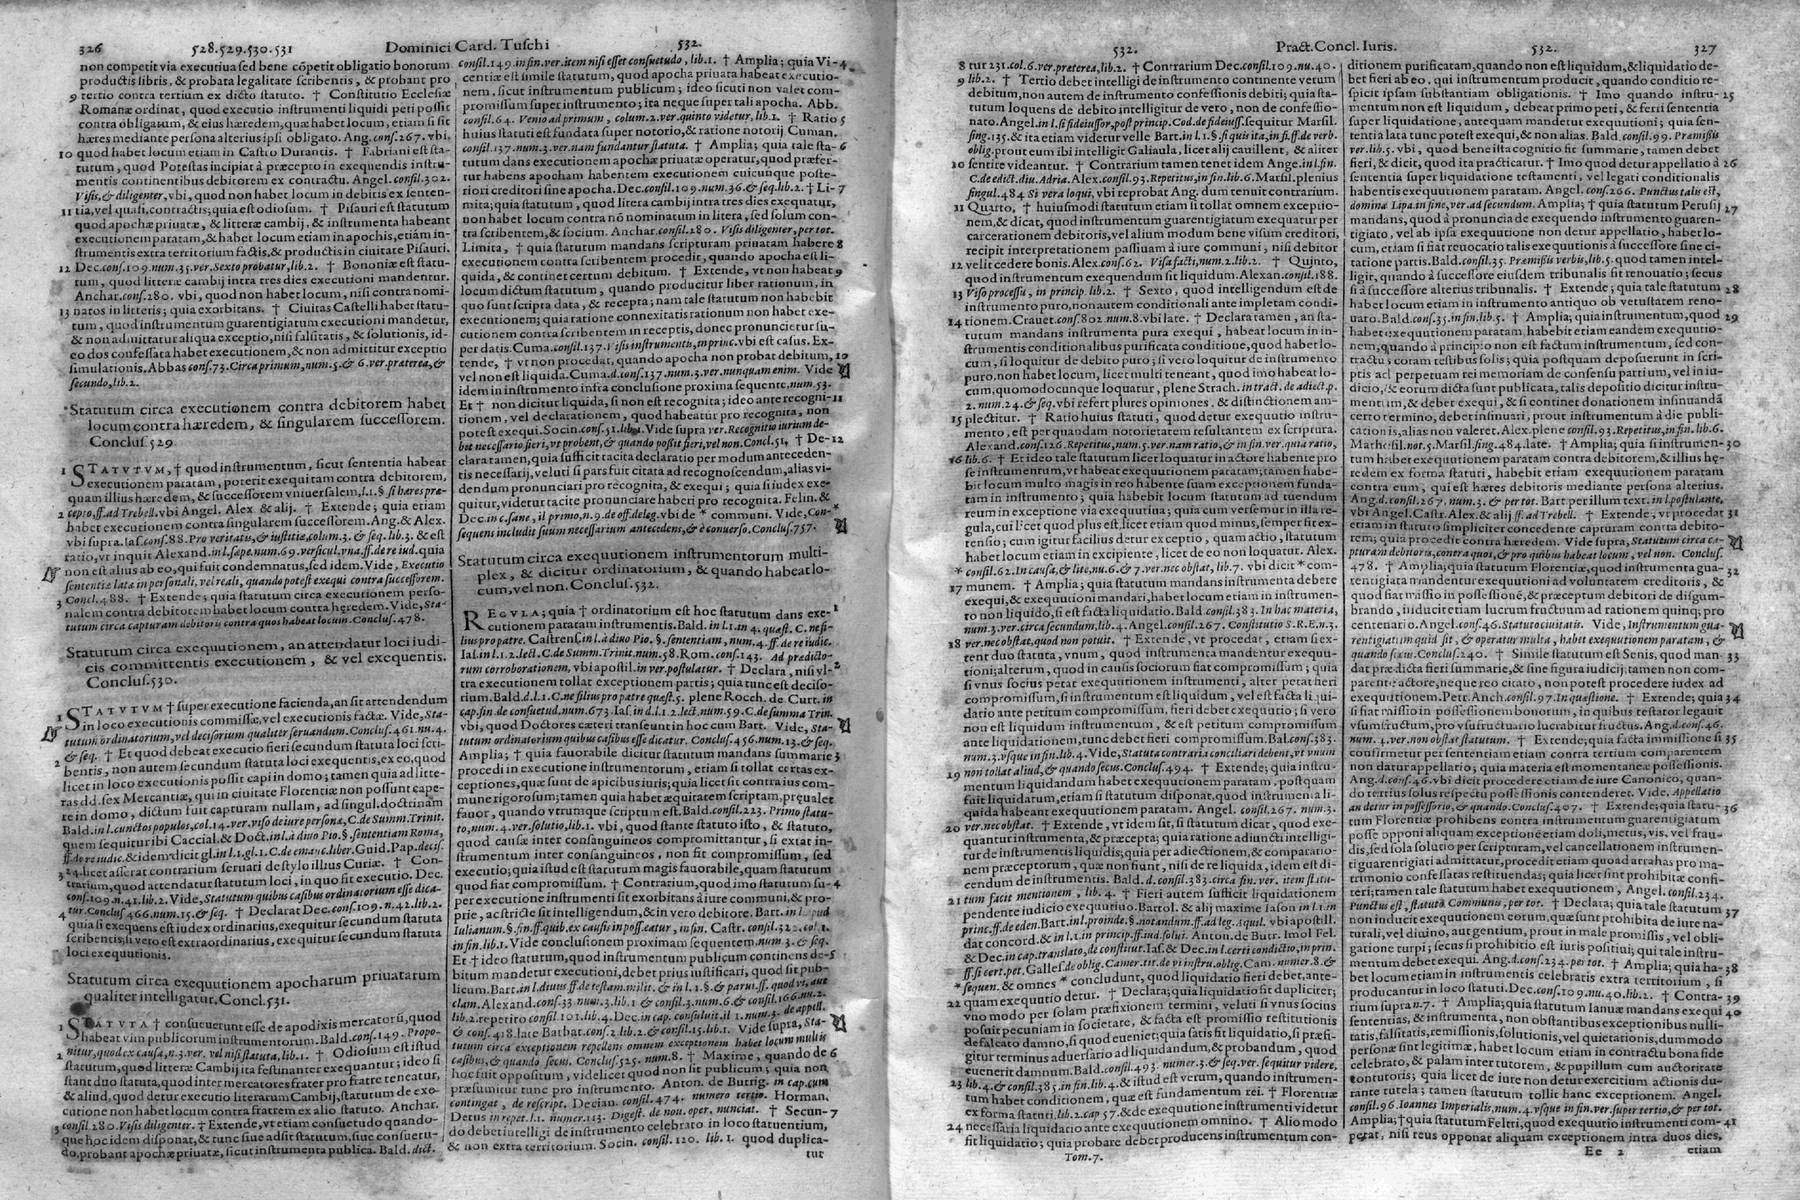 326
528.529.530.531
Dominici Card. Tuschi
532.
non competit via executiua sed bene cōpetit obligatio bonorum
productis libris, & probata legalitate scribentis, & probant pro
9 tertio contra tertium ex dicto statuto. † Constitutio Ecclesiæ
Romanæ ordinat, quod executio instrumenti liquidi peti possit
contra obligatum, & eius hæredem, quæ habet locum, etiam si sit
hæres mediante persona alterius ipsi obligato. Ang. cons. 267. vbi,
10 quod habet locum etiam in Castro Durantis. † Fabriani est sta-
tutum, quod Potestas incipiat à præcepto in exequendis instru-
mentis continentibus debitorem ex contractu. Angel. cons. 302.
Visis, & diligenter, vbi, quod non habet locum in debitis ex senten-
11 tia, vel quasi contractis; quia est odiosum. † Pisauri est statutum
quod apochæ priuatæ, & litteræ cambij, & instrumenta habeant
executionem paratam, & habet locum etiam in apochis, etiam in-
strumentis extra territorium factis, & productis in ciuitate Pisauri.
12 Dec. cons. 109. num. 35. ver. Sexto probatur, lib. 2. † Bononiæ est statu-
tum, quod litteræ cambij intra tres dies executioni mandentur.
Anchar. cons. 280. vbi, quod non habet locum, nisi contra nomi-
13 natos in litteris; quia exorbitans. † Ciuitas Castelli habet statu-
tum, quod instrumentum guarentigiatum executioni mandetur,
& non admittatur aliqua exceptio, nisi falsitatis, & solutionis, id-
eo dos confessata habet executionem, & non admittitur exceptio
simulationis. Abbas cons. 73. Circa primum, num. 5. & 6. ver. præterea, &
secundo, lib. 2.
Statutum circa executionem contra debitorem habet
locum contra hæredem, & singularem successorem.
Conclus. 529.
1 STATVTVM, † quod instrumentum, sicut sententia habeat
executionem paratam, poterit exequi tam contra debitorem,
quam illius hæredem, & successorem vniuersalem, l. 1. § si hæres præ-
2 cepto, ff. ad Trebell. vbi Angel. Alex. & alij. † Extende; quia etiam
habet executionem contra singularem successorem. Ang. & Alex.
vbi supra. Ias. cons. 88. Pro veritatis, & iustitiæ, colum. 3. & seq. lib. 3. & est
ratio, vt inquit Alexand. in l. sæpe. num. 69. versicul. vna. ff. de re iud. quia
non est alius ab eo, qui fuit condemnatus, sed idem. Vide, Executio
sententiæ lata in personali, vel reali, quando potest exequi contra successorem.
3 Concl. 488. † Extende; quia statutum circa executionem perso-
nalem contra debitorem habet locum contra hęredem. Vide, Sta-
tutum circa capturam debitoris contra quos habeat locum. Conclus. 478.
Statutum circa exequutionem, an attendatur loci iudi-
cis committentis executionem, & vel exequentis.
Conclus. 530.
1 STATVTVM † super executione facienda, an sit attendendum
in loco executionis commissæ, vel executionis factæ. Vide, Sta-
tutum ordinatorium, vel decisorium qualiter seruandum. Conclus. 461 nu. 4.
& seq. † Et quod debeat executio fieri secundum statuta loci scri-
2 bentis, non autem secundum statuta loci exequentis, ex eo, quod
licet in loco executionis possit capi in domo; tamen quia ad litte-
ras dd. sex Mercantiæ, qui in ciuitate Florentiæ non possunt cape-
re in domo, dictum fuit capturam nullam, ad singul. doctrinam
Bald. in l. cunctos populos, col. 14. ver. viso de iure persona, C. de Summ. Trinit.
quem sequitur ibi Caccial. & Doct. in l. à diuo Pio. §. sententiam Roma,
ff. de re iudic. & idem dicit gl. in l. 1. gl. 1. C. de emanc. liber. Guid. Pap. decis.
3 24. licet asserat contrarium seruari de stylo illius Curiæ. † Con-
trarium, quod attendatur statutum loci, in quo fit executio. Dec.
cons. 109. n. 41. lib. 2. Vide, Statutum quibus casibus ordinatorium esse dica-
4 tur. Conclus. 466. num. 15. & seq. † Declarat Dec. cons. 109. n. 42. lib. 2.
quia si exequens est iudex ordinarius, exequitur secundum statuta
scribentis; si vero est extraordinarius, exequitur secundum statuta
loci exequutionis.
Statutum circa exequutionem apocharum priuatarum
qualiter intelligatur. Concl. 531.
1 STATVTA † consueuerunt esse de apodixis mercatorū, quod
habeat vim publicorum instrumentorum. Bald. cons. 149. Propo-
2 nitur, quod ex causa, n. 3. ver. vel nisi statuta, lib. 1. † Odiosum est istud
statutum, quod litteræ Cambij ita festinanter exequantur; ideo si
stant duo statuta, quod inter mercatores frater pro fratre teneatur,
& aliud, quod detur executio literarum Cambij, statutum de exe-
cutione non habet locum contra fratrem ex alio statuto. Anchar.
3 consil 280. Visis diligenter. † Extende, vt etiam consuetudo quando-
que hoc idem disponat, & tunc siue adsit statutum, siue consuetu-
do, probant apochæ priuatæ, sicut instrumenta publica. Bald. dict.
consil. 149. in fin. ver. item nisi esset consuetudo, lib. 1. † Amplia; quia Vi- 4
centiæ est simile statutum, quod apocha priuata habeat executio-
nem, sicut instrumentum publicum; ideo sicuti non valet com-
promissum super instrumento; ita neque super tali apocha. Abb.
consil. 64. Venio ad primum, colum. 2. ver. quinto videtur, lib. 1. † Ratio 5
huius statuti est fundata super notorio, & ratione notorij Cuman.
consil. 137. num. 3. ver. nam fundantur statuta. † Amplia; quia tale sta- 6
tutum dans executionem apochæ priuatæ operatur, quod præfer-
tur habens apocham habentem executionem cuicunque poste-
riori creditori sine apocha. Dec. consil. 109. num. 36. & seq. lib. 2. † Li- 7
mita; quia statutum, quod litera cambij intra tres dies exequatur,
non habet locum contra nō nominatum in litera, sed solum con-
tra scribentem, & socium. Anchar. consil. 280. Visis diligenter, per tot.
Limita, † quia statutum mandans scripturam priuatam habere 8
executionem contra scribentem procedit, quando apocha est li-
quida, & continet certum debitum. † Extende, vt non habeat 9
locum dictum statutum, quando producitur liber rationum, in
quo sunt scripta data, & recepta; nam tale statutum non habebit
executionem; quia ratione connexitatis rationum non habet exe-
cutionem contra scribentem in receptis, donec pronuncietur su-
per datis. Cuma. consil. 137. Visis instrumentis, in princ. vbi est casus. Ex-
tende, † vt non procedat, quando apocha non probat debitum, 10
vel non est liquida. Cuma. d. consil. 137. num. 3. ver. nunquam enim. Vide
idem in instrumento infra conclusione proxima sequente, num. 53.
Et † non dicitur liquida, si non est recognita; ideo ante recogni- 11
tionem, vel declarationem, quod habeatur pro recognita, non
potest exequi. Socin. cons. 51. lib. 1. Vide supra ver. Recognitio iurium de-
bet necessario fieri, vt probent, & quando possit fieri, vel non. Concl. 51. † De- 12
clara tamen, quia sufficit tacita declaratio per modum anteceden-
tis necessarij, veluti si pars fuit citata ad recognoscendum, alias vi-
dendum pronunciari pro recognita, & exequi; quia si iudex exe-
quitur, videtur tacite pronunciare haberi pro recognita. Felin. &
Dec. in c. sane, il primo, n. 9. de off. deleg. vbi de * communi. Vide, Con- *
sequens includit suum necessarium antecedens, & è conuerso. Conclus. 757.
Statutum circa exequutionem instrumentorum multi-
plex, & dicitur ordinatorium, & quando habeat lo-
cum, vel non. Conclus. 532.
REGVLA; quia † ordinatorium est hoc statutum dans exe- 1
cutionem paratam instrumentis. Bald. in l. 1. in 4. quæst. C. ne fi-
lius pro patre. Castrens. in l. à diuo Pio. §. sententiam, num. 4. ff. de re iudic.
Ias. in l. 2. lect. C. de Summ. Trinit. num. 58. Rom. cons. 143. Ad prædicto-
rum corroborationem, vbi apostil. in ver. postulatur. † Declara, nisi vl- 2
tra executionem tollat exceptionem partis; quia tunc est deciso-
rium. Bald. d. l. 1. C. ne filius pro patre quæst. 5. plene Roch. de Curt. in
cap. fin. de consuetud. num. 673. Ias. in d. l. 1. 2. lect. num. 59. C. de summa Trin.
vbi, quod Doctores cæteri transeunt in hoc cum Bart. Vide, Sta-
tutum ordinatorium quibus casibus esse dicatur. Conclus. 456. num. 13. & seq.
Amplia; † quia fauorabile dicitur statutum mandans summarie 3
procedi in executione instrumentorum, etiam si tollat certas ex-
ceptiones, quæ sunt de apicibus iuris; quia licet sit contra ius com-
mune rigorosum; tamen quia habet æquitatem scriptam, pręualet
fauor, quando vtrumque scriptum est. Bald. consil. 223. Primo statu-
to, num. 4. ver. solutio, lib. 1. vbi, quod stante statuto isto, & statuto,
quod causæ inter consanguineos compromittantur, si extat in-
strumentum inter consanguineos, non fit compromissum, sed
executio; quia istud est statutum magis fauorabile, quam statutum
quod fiat compromissum. † Contrarium, quod imo statutum su- 4
per executione instrumenti sit exorbitans à iure communi, & pro-
prie, ac stricte sit intelligendum, & in vero debitore. Bart. in l. apud
Iulianum. §. fin. ff. quib. ex causis in poss. eatur, in fin. Castr. consil. 322. col. 1.
in fin. lib. 1. Vide conclusionem proximam sequentem. num. 3. & seq.
Et † ideo statutum, quod instrumentum publicum continens de- 5
bitum mandetur executioni, debet prius iustificari, quod sit pub-
licum. Bart. in l. diuus ff. de testam. milit. & in l. 1. §. & parui. ff. quod vi, aut
clam. Alexand. cons. 33. num. 3. lib. 1 & consil. 3. num. 6. & consil. 166. nu. 2.
lib. 2. repetito consil 101. lib. 4. Dec. in cap. consuluit. il 1. num. 3. de appell.
& cons. 418. late Barbat. cons. 2 lib. 2. & consil. 15. lib. 1. Vide supra, Sta-
tutum circa exceptionem repellens omnem exceptionem habet locum multis
casibus, & quando secus. Conclus. 525. num. 8. † Maxime, quando de 6
hoc fuit oppositum, videlicet quod non sit publicum; quia non
præsumitur tunc pro instrumento. Anton. de Butrig. in cap. cum
contingat, de rescript. Decian. consil. 474. numero tertio. Horman.
Detus in repet. l. 1. numer. 113. Digest. de nou. oper. nunciat. † Secun- 7
do debet intelligi de instrumento celebrato in loco statuentium,
& non extra territorium. Socin. consil. 120. lib. 1. quod duplica-
tur
532.
Pract. Concl. Iuris.
532.
327
8 tur 231. col. 6. ver. præterea, lib. 2. † Contrarium Dec. consil. 109. nu. 40.
9 lib. 2. † Tertio debet intelligi de instrumento continente verum
debitum, non autem de instrumento confessionis debiti; quia sta-
tutum loquens de debito intelligitur de vero, non de confessio-
nato. Angel. in l. si fideiussor, post princip. Cod. de fideiuss. sequitur Marsil.
sing. 135. & ita etiam videtur velle Bart. in l. 1. §. si quis ita, in fi. ff. de verb.
oblig. prout eum ibi intelligit Galiaula, licet alij cauillent, & aliter
10 sentite videantur. † Contrarium tamen tenet idem Ange. in l. fin.
C. de edict. diu. Adria. Alex. consil. 93. Repetitus, in fin. lib. 6. Marsil. plenius
singul. 484 Si vera loqui, vbi reprobat Ang. dum tenuit contrarium.
11 Quarto, † huiusmodi statutum etiam si tollat omnem exceptio-
nem, & dicat, quod instrumentum guarentigiatum exequatur per
carcerationem debitoris, vel alium modum bene visum creditori,
recipit interpretationem passiuam à iure communi, nisi debitor
12 velit cedere bonis. Alex. cons. 62. Visa facti, num. 2. lib. 2. † Quinto,
quod instrumentum exequendum sit liquidum. Alexan. consil. 188.
13 Viso processu, in princip. lib. 2. † Sexto, quod intelligendum est de
instrumento puro, non autem conditionali ante impletam condi-
14 tionem. Crauet. cons. 802 num. 8. vbi late. † Declara tamen, an sta-
tutum mandans instrumenta pura exequi, habeat locum in in-
strumentis conditionalibus purificata conditione, quod habet lo-
cum, si loquitur de debito puro; si vero loquitur de instrumento
puro, non habet locum, licet multi teneant, quod imo habeat lo-
cum, quomodocunque loquatur, plene Strach. in tract. de adiect. p.
2. num. 24. & seq. vbi refert plures opiniones, & distinctionem am-
15 plectitur. † Ratio huius statuti, quod detur exequutio instru-
mento, est per quandam notorietatem resultantem ex scriptura.
Alexand. cons. 126. Repetitus, num. 5. ver. nam ratio, & in fin. ver. quia ratio,
16 lib. 6. † Et ideo tale statutum licet loquatur in actore habente pro
se instrumentum, vt habeat exequutionem paratam; tamen habe-
bit locum multo magis in reo habente suam exceptionem funda-
tam in instrumento; quia habebit locum statutum ad tuendum
reum in exceptione via exequutiua; quia cum versemur in illa re-
gula, cui licet quod plus est, licet etiam quod minus, semper fit ex-
tensio; cum igitur facilius detur exceptio, quam actio, statutum
habet locum etiam in excipiente, licet de eo non loquatur. Alex.
* consil. 62. In causa, & lite, nu. 6. & 7. ver. nec obstat, lib. 7. vbi dicit * com-
17 munem. † Amplia; quia statutum mandans instrumenta debere
exequi, & executioni mandari, habet locum etiam in instrumen-
to non liquido, si est facta liquidatio. Bald. consil. 383. In hac materia,
num. 3. ver. circa secundum, lib. 4. Angel. consil. 267. Constitutio S. R. E. n. 3.
18 ver. nec obstat, quod non potuit. † Extende, vt procedat, etiam si ex-
tent duo statuta, vnum, quod instrumenta mandentur exequu-
tioni; alterum, quod in causis sociorum fiat compromissum; quia
si vnus socius petat exequutionem instrumenti, alter petat fieri
compromissum, si instrumentum est liquidum, vel est facta liqui-
datio ante petitum compromissum, fieri debet exequutio; si vero
non est liquidum instrumentum, & est petitum compromissum
ante liquidationem, tunc debet fieri compromissum. Bal. cons. 383.
num. 3. vsque in fin. lib. 4. Vide, Statuta contraria conciliari debent, vt vnum
19 non tollat aliud, & quando secus. Conclus. 494. † Extende; quia instru-
mentum liquidandum habet exequutionem paratam, postquam
fuit liquidatum, etiam si statutum disponat, quod instrumenta li-
quida habeant exequutionem paratam. Angel. consil. 267. num. 3.
20 ver. nec obstat. † Extende, vt idem sit, si statutum dicat, quod exe-
quantur instrumenta, & pręcepta; quia ratione adiuncti intelligi-
tur de instrumentis liquidis; quia per adiectionem, & comparatio-
nem præceptorum, quæ non fiunt, nisi de re liquida, idem est di-
cendum de instrumentis. Bald. d. consil. 383. circa fin. ver. item si statu-
21 tum facit mentionem, lib. 4. † Fieri autem sufficit liquidationem
pendente iudicio exequutiuo. Bartol. & alij maxime Iason in l. 1. in
princ. ff. de eden. Bart. in l. proinde. §. notandum. ff. ad leg. Aquil. vbi apostill.
dat concord. & in l. 1. in princip. ff. iud. solui. Anton. de But. Imol. Fel.
& Dec. in cap. translato, de constitut. Ias. & Dec. in l. certi condictio, in prin.
ff. si cert. pet. Galles. de oblig. Camer. tit. de vi instru. oblig. Cam. numer. 8. &
* sequen. & omnes * concludunt, quod liquidatio fieri debet, ante-
22 quam exequutio detur. † Declara; quia liquidatio fit dupliciter;
vno modo per solam præfixionem termini, veluti si vnus socius
posuit pecuniam in societate, & facta est promissio restitutionis
defalcato damno, si quod eueniet; quia satis fit liquidatio, si præfi-
gitur terminus aduersario ad liquidandum, & probandum, quod
euenerit damnum. Bald. consil. 493. numer. 3. & seq. ver. sequitur videre,
23 lib. 4. & consil. 385. in fin. lib. 4. & istud est verum, quando instrumen-
tum habet conditionem, quæ est fundamentum rei. † Florentiæ
ex forma statuti, lib. 2. cap 57. & de exequutione instrumenti videtur
24 necessaria liquidatio ante exequutionem omnino. † Alio modo
fit liquidatio; quia probare debet producens instrumentum con-
Tom. 7.
ditionem purificatam, quando non est liquidum, & liquidatio de-
bet fieri ab eo, qui instrumentum producit, quando conditio re-
spicit ipsam substantiam obligationis. † Imo quando instru- 25
mentum non est liquidum, debeat primo peti, & ferri sententia
super liquidatione, antequam mandetur exequutioni; quia sen-
tentia lata tunc potest exequi, & non alias. Bald. consil. 99. Præmissis
ver. lib. 5. vbi, quod bene ista cognitio fit summarie, tamen debet
fieri, & dicit, quod ita practicatur. † Imo quod detur appellatio à 26
sententia super liquidatione testamenti, vel legati conditionalis
habentis exequutionem paratam. Angel. cons. 266. Punctus talis est,
domina Lipa. in fine, ver. ad secundum. Amplia; † quia statutum Perusij 27
mandans, quod à pronuncia de exequendo instrumento guaren-
tigiato, vel ab ipsa exequutione non detur appellatio, habet lo-
cum, etiam si fiat reuocatio talis exequutionis à successore sine ci-
tatione partis. Bald. consil. 35. Præmissis verbis, lib. 5. quod tamen intel-
ligit, quando à successore eiusdem tribunalis sit renouatio; secus
si à successore alterius tribunalis. † Extende; quia tale statutum 28
habet locum etiam in instrumento antiquo ob vetustatem reno-
uato. Bald. cons. 35. in fin. lib. 5. † Amplia; quia instrumentum, quod 29
habet exequutionem paratam, habebit etiam eandem exequutio-
nem, quando à principio non est factum instrumentum, sed con-
tractus coram testibus solis; quia postquam deposuerunt in scri-
ptis ad perpetuam rei memoriam de consensu partium, vel in iu-
dicio, & eorum dicta sunt publicata, talis depositio dicitur instru-
mentum, & debet exequi, & si continet donationem insinuandā
certo termino, debet insinuari, prout instrumentum à die publi-
cationis, alias non valeret. Alex. plene consil. 93. Repetitus, in fin. lib. 6.
Mathesil. not. 5. Marsil. sing. 484. late. † Amplia; quia si instrumen- 30
tum habet exequutionem contra debitorem, & illius hę-
redem ex forma statuti, habebit etiam exequutionem paratam
contra eum, qui est hæres debitoris mediante persona alterius.
Ang. d. consil. 267. num. 3. & per tot. Bart per illum text. in l. postulante,
vbi Angel. Castr. Alex. & alij ff. ad Trebell. † Extende; vt procedat 31
etiam in statuto simpliciter concedente capturam contra debito-
rem; quia procedit contra hæredem. Vide supra, Statutum circa ca-
pturam debitoris, contra quos, & pro quibus habeat locum, vel non. Conclus.
478. † Amplia; quia statutum Florentiæ, quod instrumenta gua- 32
rentigiata mandentur exequutioni ad voluntatem creditoris, &
quod fiat missio in possessionē, & præceptum debitori de disgum-
brando, inducit etiam lucrum fructuum ad rationem quinq; pro
centenario. Angel. cons. 46. Statuto ciuitatis. Vide, Instrumentum gua-
rentigiatum quid sit, & operatur multa, habet exequutionem paratam, &
quando secus. Conclus. 240. † Simile statutum est Senis, quod man- 33
dat prædicta fieri summarie, & sine figura iudicij; tamen non com-
parente actore, neque reo citato, non potest procedere iudex ad
exequutionem. Petr. Anch. consil. 97. In quæstione. † Extende; quia 34
si fiat missio in possessionem bonorum, in quibus testator legauit
vsumfructum, pro vsufructu lucrabitur fructus. Ang. d. cons. 46.
num. 4. ver. non obstat statutum. † Extende; quia facta immissione si 35
confirmetur per sententiam contra tertium comparentem
non datur appellatio; quia materia est momentaneæ possessionis.
Ang. d. cons. 46. vbi dicit procedere etiam de iure Canonico, quan-
do tertius solus respectu possessionis contenderet. Vide, Appellatio
an detur in possessorio, & quando. Conclus. 407. † Extende; quia statu- 36
tum Florentiæ prohibens contra instrumentum guarentigiatum
posse opponi aliquam exceptionē etiam doli, metus, vis, vel frau-
dis, sed sola solutio per scripturam, vel cancellationem instrumen-
ti guarentigiati admittatur, procedit etiam quoad arrhas pro ma-
trimonio confessatas restituendas; quia licet sint prohibitæ confi-
teri; tamen tale statutum habet exequutionem, Angel. cons. 234.
Punctus est, statuta Communis, per tot. † Declara; quia tale statutum 37
non inducit exequutionem eorum, quæ sunt prohibita de iure na-
turali, vel diuino, aut gentium, prout in male promissis, vel obli-
gatione turpi; secus si prohibitio est iuris positiui; qui tamen
obligatione turpi. Ang. d. cons. 234. per tot. † Amplia; quia ha- 38
bet locum etiam in instrumentis celebratis extra territorium, si
producantur in loco statuti. Dec. cons. 109. nu. 40. lib. 2. † Contra- 39
rium supra n. 7. † Amplia; quia statutum Ianuæ mandans exequi 40
sententias, & instrumenta, non obstantibus exceptionibus nulli-
tatis, falsitatis, remissionis, solutionis, vel quietationis, dummodo
personæ sint legitimæ, habet locum etiam in contractu bona fide
celebrato, & palam inter tutorem, & pupillum cum auctoritate
contutoris; quia licet de iure non detur exercitium actionis du-
rante tutela; tamen statutum tollit hanc exceptionem. Angel.
consil. 96. Ioannes Imperialis, num. 4. vsque in fin. ver. super tertio, & per tot.
Amplia; † quia statutum Feltri, quod exequutio instrumenti com- 41
petat, nisi reus opponat aliquam exceptionem intra duos dies,
Ee 2
etiam